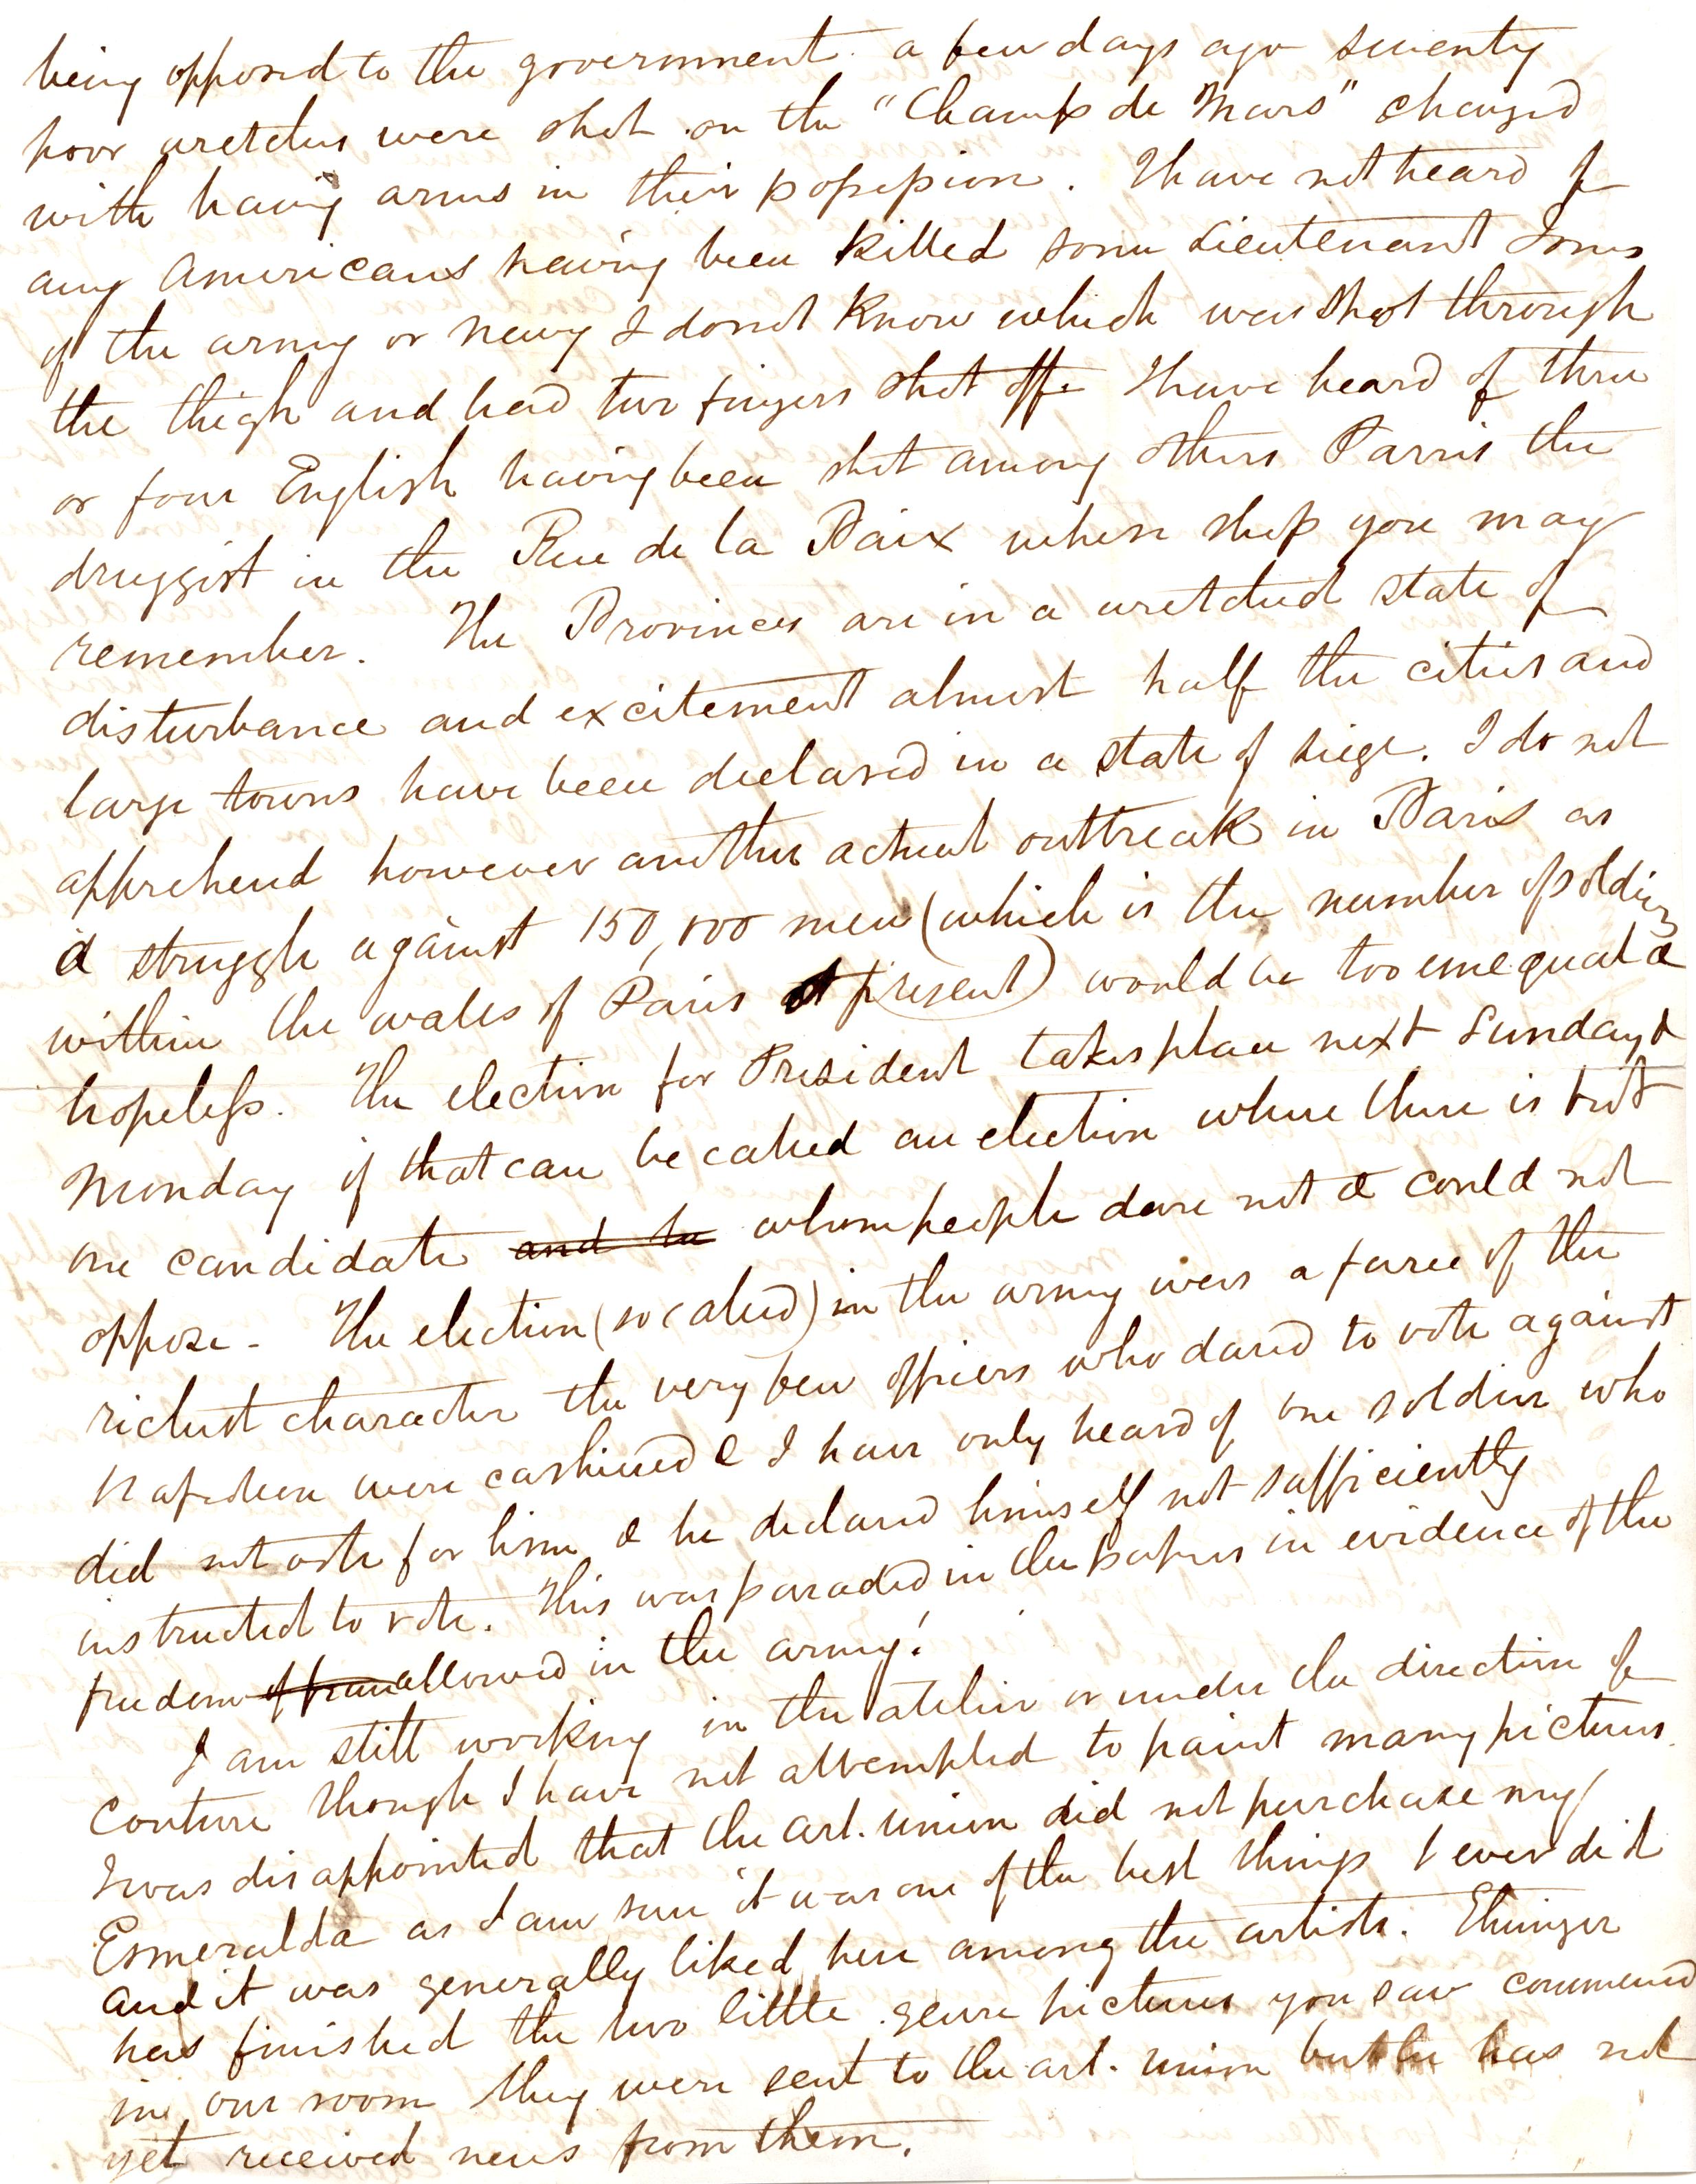 being opposed to the government. a few days ago seventy
poor wretches were shot on the "Champ de Mars" charged
with having arms in their possession. I have not heard of
any Americans having been killed some Lieutenant Jones
of the army or navy I do not know which was shot through
the thigh and had two fingers shot off. I have heard of three
or four English having been shot among others Parris the
druggist in the Rue de la Paix whose shop you may
remember. The Provinces are in a wretched state of
disturbance and excitement almost half the cities and
large towns have been declared in a state of siege. I do not
apprehend however another actual outbreak in Paris as
a struggle against 150,000 men (which is the number of soldiers
within the walls of Paris at present) would be too unequal &
hopeless. The election for President takes place next Sunday &
Monday if that can be called an election where there is but
one candidate and he whom people dare not & could not
oppose - The election (so called) in the army was a farce of the
richest character the very few officers who dared to vote against
Napoleon were cashiered & I have only heard of one soldier who
did not vote for him & he declared himself not sufficiently
instructed to vote. This was paraded in the papers in evidence of the
freedom allowed in the army!
I am still working in the atelier or under the direction of
Couture though I have not attempted to paint many pictures.
I was disappointed that the art. union did not purchase my
Esmeralda as I am sure it was one of the best things I ever did
and it was generally liked here among the artists. Ehninger
has finished the two little genre pictures you saw commenced
in our room they were sent to the art. union but he has not
yet received news from them.